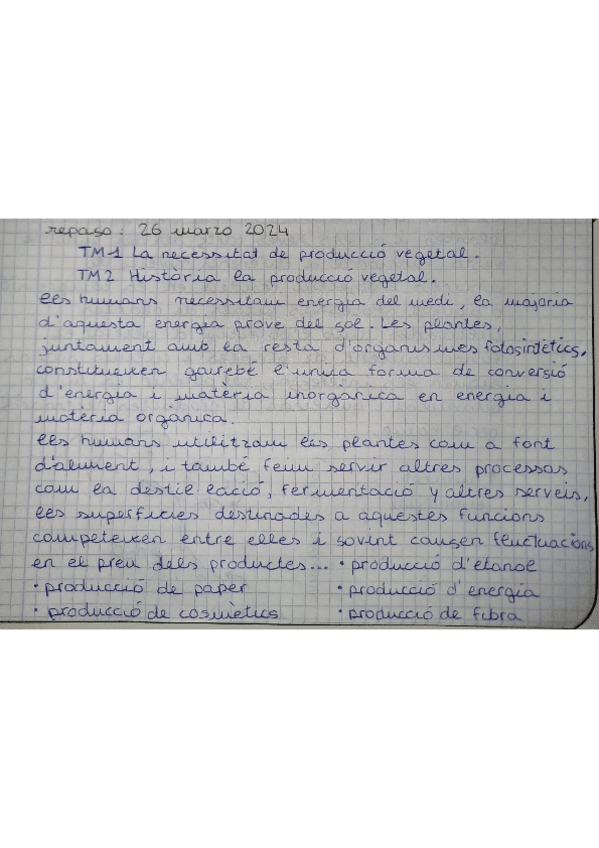 repaso: 26 marzo 2024
TM1 La necessitat de producció vegetal.
TM2 Història la producció vegetal.
els humans necessitam energia del medi, la majoria
d'aquesta energia prove del sol. Les plantes,
juntament amb la resta d'organismes fotosintètics,
constitueixen gairebé l'unica forma de conversió
d'energia i matèria inorgànica en energia i
matèria orgànica.
els humans utilitzam les plantes com a font
d'aliment, i també feim servir altres processos
com la destil·lació, fermentació y altres serveis,
les superficies destinades a aquestes funcions
competeixen entre elles i sovint causen fluctuacions
en el preu dels productes... • producció d'etanol
• producció de paper • producció d'energia
• producció de cosmètics • producció de fibra